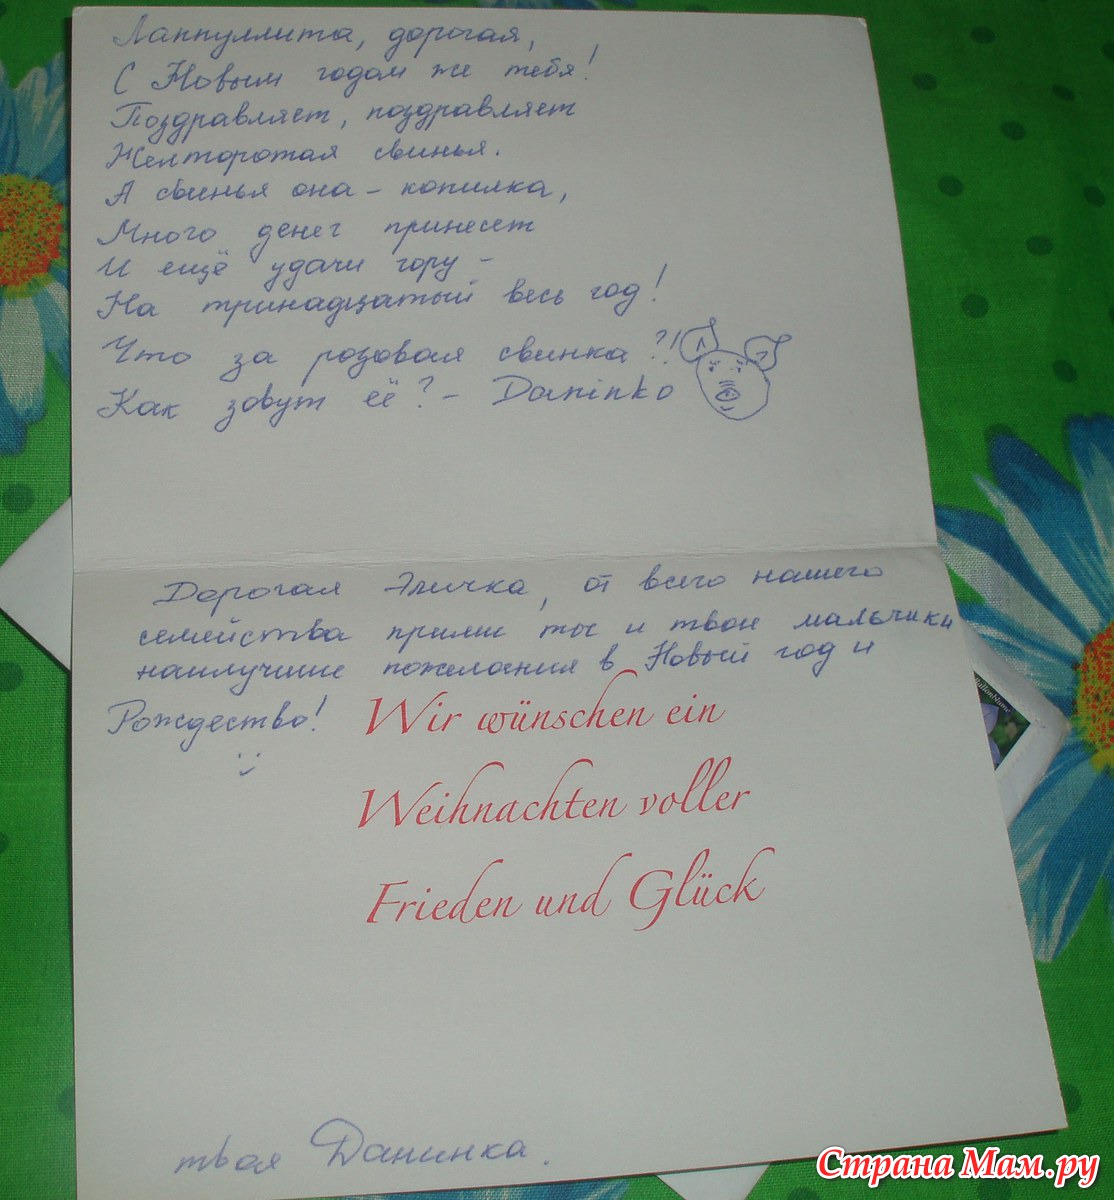 Лаппуллита, дорогая,
С Новым годом же тебя!
Поздравляет, поздравляет
Желторотая свинья.
А свинья она - копилка,
Много денег принесет
И ещё удачи гору -
На тринадцатый весь год!
Что за розовая свинка?!
Как зовут её? - Daninko
Дорогая Эличка, от всего нашего
семейства прими ты и твои мальчики
наилучшие пожелания в Новый год и
Рождество!
Wir wünschen ein
Weihnachten voller
Frieden und Glück
твоя Данинка.
Страна Мам.ру